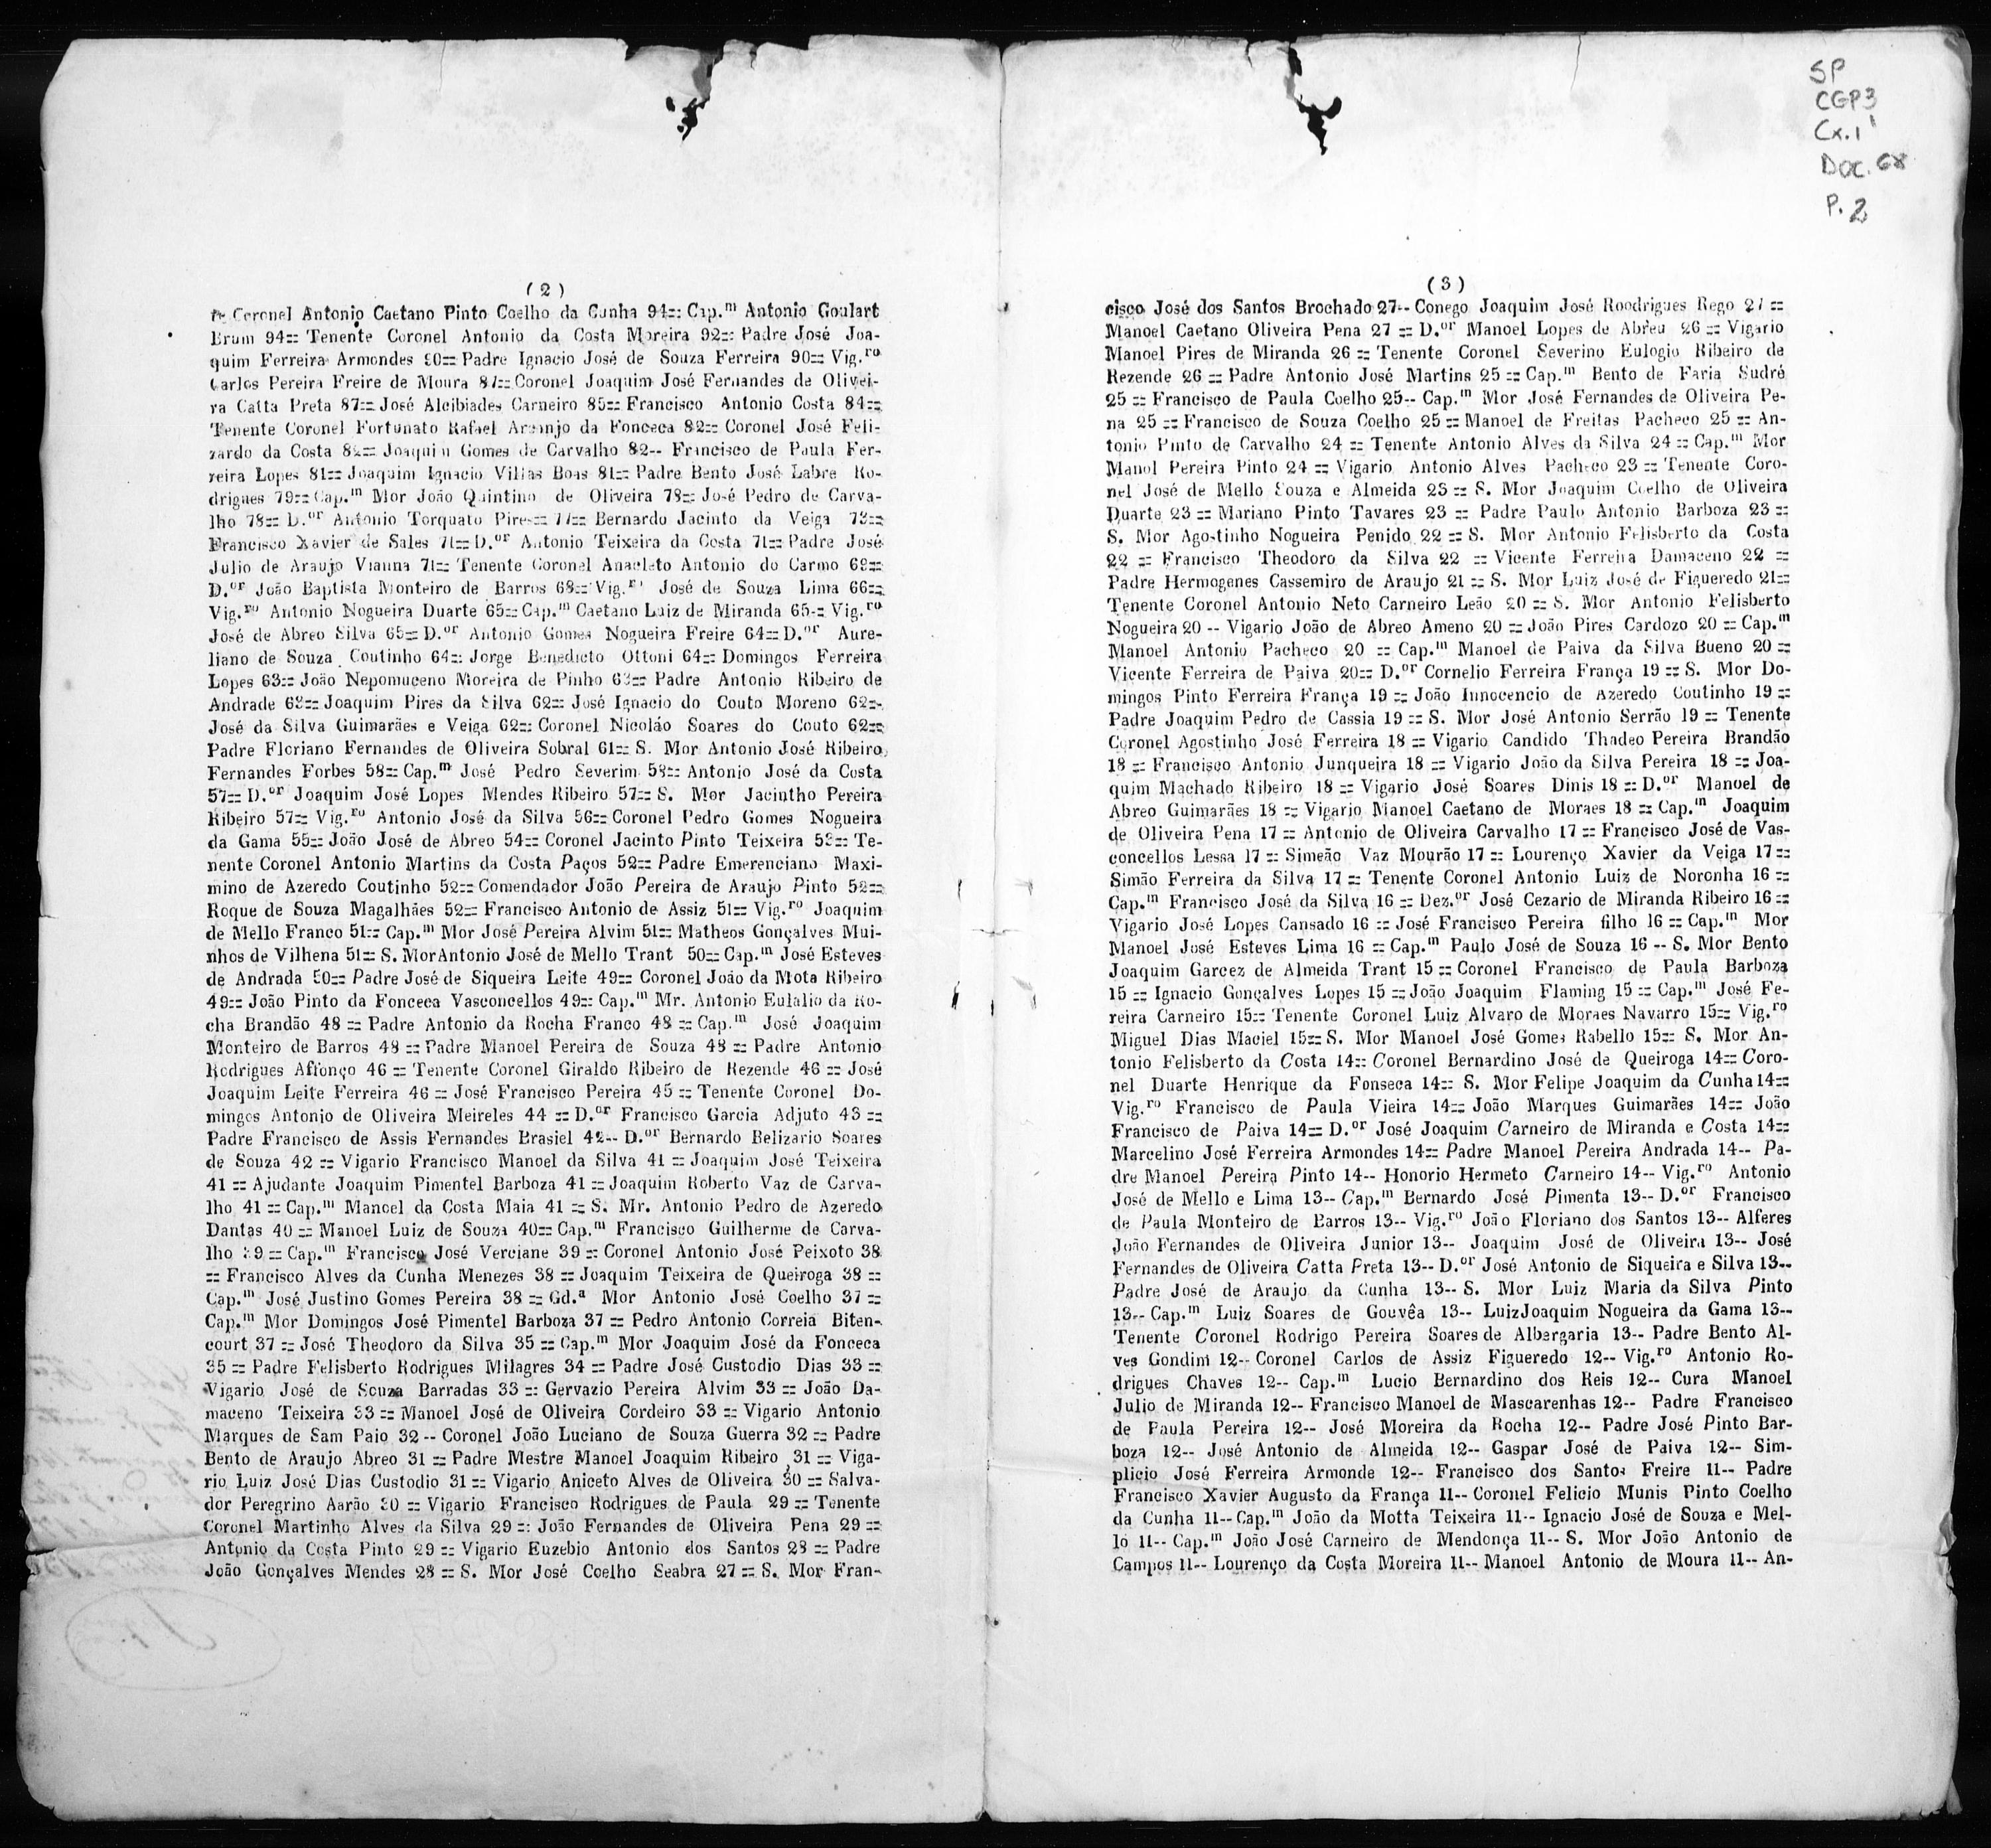 (2)
te Coronel Antonio Caetano Pinto Coelho da Cunha 94=: Cap.m Antonio Goulart
Brum 94== Tenente Coronel Antonio da Costa Moreira 92=: Padre José Joa-
quim Ferreira Armondes 90== Padre Ignacio José de Souza Ferreira 90== Vig.ro
Carlos Pereira Freire de Moura 87== Coronel Joaquim José Fernandes de Olivei-
ra Catta Preta 87== José Alcibiades Carneiro 85== Francisco Antonio Costa 84==
Tenente Coronel Fortunato Rafael Arcanjo da Fonceca 82== Coronel José Feli-
zardo da Costa 82== Joaquim Gomes de Carvalho 82-- Francisco de Paula Fer-
reira Lopes 81== Joaquim Ignacio Villas Boas 81== Padre Bento José Labre Ro-
drigues 79== Cap.m Mor João Quintino de Oliveira 78== José Pedro de Carva-
lho 78== D.or Antonio Torquato Pires== 77== Bernardo Jacinto da Veiga 73==
Francisco Xavier de Sales 71== D.or Antonio Teixeira da Costa 71== Padre José
Julio de Araujo Vianna 71== Tenente Coronel Anacleto Antonio do Carmo 69==
D.or João Baptista Monteiro de Barros 68== Vig.ro José de Souza Lima 66==
Vig.ro Antonio Nogueira Duarte 65== Cap.m Caetano Luiz de Miranda 65-= Vig.ro
José de Abreo Silva 65== D.or Antonio Gomes Nogueira Freire 64== D.or Aure-
liano de Souza Coutinho 64=: Jorge Benedicto Ottoni 64== Domingos Ferreira
Lopes 63== João Nepomuceno Moreira de Pinho 63== Padre Antonio Ribeiro de
Andrade 63== Joaquim Pires da Silva 62== José Ignacio do Couto Moreno 62==
José da Silva Guimarães e Veiga 62== Coronel Nicoláo Soares do Couto 62==
Padre Floriano Fernandes de Oliveira Sobral 61== S. Mor Antonio José Ribeiro
Fernandes Forbes 58== Cap.m José Pedro Severim 58== Antonio José da Costa
57== D.or Joaquim José Lopes Mendes Ribeiro 57== S. Mor Jacintho Pereira
Ribeiro 57== Vig.ro Antonio José da Silva 56== Coronel Pedro Gomes Nogueira
da Gama 55== João José de Abreo 54== Coronel Jacinto Pinto Teixeira 53== Te-
nente Coronel Antonio Martins da Costa Paços 52== Padre Emerenciano Maxi-
mino de Azeredo Coutinho 52== Comendador João Pereira de Araujo Pinto 52==
Roque de Souza Magalhães 52== Francisco Antonio de Assiz 51== Vig.ro Joaquim
de Mello Franco 51== Cap.m Mor José Pereira Alvim 51== Matheos Gonçalves Mui-
nhos de Vilhena 51== S. MorAntonio José de Mello Trant 50== Cap.m José Esteves
de Andrada 50== Padre José de Siqueira Leite 49== Coronel João da Mota Ribeiro
49== João Pinto da Fonceca Vasconcellos 49== Cap.m Mr. Antonio Eulalio da Ro-
cha Brandão 48 == Padre Antonio da Rocha Franco 48 == Cap.m José Joaquim
Monteiro de Barros 48 == Padre Manoel Pereira de Souza 48 == Padre Antonio
Rodrigues Affonço 46 == Tenente Coronel Giraldo Ribeiro de Rezende 46 == José
Joaquim Leite Ferreira 46 == José Francisco Pereira 45 == Tenente Coronel Do-
mingos Antonio de Oliveira Meireles 44 == D.or Francisco Garcia Adjuto 43 ==
Padre Francisco de Assis Fernandes Brasiel 42-- D.or Bernardo Belizario Soares
de Souza 42 == Vigario Francisco Manoel da Silva 41 == Joaquim José Teixeira
41 == Ajudante Joaquim Pimentel Barboza 41 == Joaquim Roberto Vaz de Carva-
lho 41 == Cap.m Manoel da Costa Maia 41 == S. Mr. Antonio Pedro de Azeredo
Dantas 40 == Manoel Luiz de Souza 40== Cap.m Francisco Guilherme de Carva-
lho 39 == Cap.m Francisco José Verciane 39 == Coronel Antonio José Peixoto 38
== Francisco Alves da Cunha Menezes 38 == Joaquim Teixeira de Queiroga 38 ==
Cap.m José Justino Gomes Pereira 38 == Gd.a Mor Antonio José Coelho 37 ==
Cap.m Mor Domingos José Pimentel Barboza 37 == Pedro Antonio Correia Biten-
court 37 == José Theodoro da Silva 35 == Cap.m Mor Joaquim José da Fonceca
35 == Padre Felisberto Rodrigues Milagres 34 == Padre José Custodio Dias 33 ==
Vigario José de Souza Barradas 33 =: Gervazio Pereira Alvim 33 == João Da-
maceno Teixeira 33 == Manoel José de Oliveira Cordeiro 33 == Vigario Antonio
Marques de Sam Paio 32 -- Coronel João Luciano de Souza Guerra 32 == Padre
Bento de Araujo Abreo 31 == Padre Mestre Manoel Joaquim Ribeiro 31 == Viga-
rio Luiz José Dias Custodio 31 == Vigario Aniceto Alves de Oliveira 30 == Salva-
dor Peregrino Aarão 30 == Vigario Francisco Rodrigues de Paula 29 == Tenente
Coronel Martinho Alves da Silva 29 =: João Fernandes de Oliveira Pena 29 ==
Antonio da Costa Pinto 29 == Vigario Euzebio Antonio dos Santos 28 == Padre
João Gonçalves Mendes 28 == S. Mor José Coelho Seabra 27 == S. Mor Fran-
SP
CGP3
Cx.1
Doc. 68
P. 2
(3)
cisco José dos Santos Brochado 27-- Conego Joaquim José Roodrigues Rego 27 ==
Manoel Caetano Oliveira Pena 27 == D.or Manoel Lopes de Abreu 26 == Vigario
Manoel Pires de Miranda 26 == Tenente Coronel Severino Eulogio Ribeiro de
Rezende 26 == Padre Antonio José Martins 25 == Cap.m Bento de Faria Sudré
25 == Francisco de Paula Coelho 25-- Cap.m Mor José Fernandes de Oliveira Pe-
na 25 == Francisco de Souza Coelho 25 == Manoel de Freitas Pacheco 25 == An-
tonio Pinto de Carvalho 24 == Tenente Antonio Alves da Silva 24 == Cap.m Mor
Manol Pereira Pinto 24 == Vigario Antonio Alves Pacheco 23 == Tenente Coro-
nel José de Mello Souza e Almeida 23 == S. Mor Joaquim Coelho de Oliveira
Duarte 23 == Mariano Pinto Tavares 23 == Padre Paulo Antonio Barboza 23 ==
S. Mor Agostinho Nogueira Penido 22 == S. Mor Antonio Felisberto da Costa
22 == Francisco Theodoro da Silva 22 == Vicente Ferreira Damaceno 22 ==
Padre Hermogenes Cassemiro de Araujo 21 == S. Mor Luiz José de Figueredo 21==
Tenente Coronel Antonio Neto Carneiro Leão 20 == S. Mor Antonio Felisberto
Nogueira 20 -- Vigario João de Abreo Ameno 20 == João Pires Cardozo 20 == Cap.m
Manoel Antonio Pacheco 20 == Cap.m Manoel de Paiva da Silva Bueno 20 ==
Vicente Ferreira de Paiva 20== D.or Cornelio Ferreira França 19 == S. Mor Do-
mingos Pinto Ferreira França 19 == João Innocencio de Azeredo Coutinho 19 ==
Padre Joaquim Pedro de Cassia 19 == S. Mor José Antonio Serrão 19 == Tenente
Coronel Agostinho José Ferreira 18 == Vigario Candido Thadeo Pereira Brandão
18 == Francisco Antonio Junqueira 18 == Vigario João da Silva Pereira 18 == Joa-
quim Machado Ribeiro 18 == Vigario José Soares Dinis 18 == D.or Manoel de
Abreo Guimarães 18 == Vigario Manoel Caetano de Moraes 18 == Cap.m Joaquim
de Oliveira Pena 17 == Antonio de Oliveira Carvalho 17 == Francisco José de Vas-
concellos Lessa 17 == Simeão Vaz Mourão 17 == Lourenço Xavier da Veiga 17 ==
Simão Ferreira da Silva 17 == Tenente Coronel Antonio Luiz de Noronha 16 ==
Cap.m Francisco José da Silva 16 == Dez.or José Cezario de Miranda Ribeiro 16 ==
Vigario José Lopes Cansado 16 == José Francisco Pereira filho 16 == Cap.m Mor
Manoel José Esteves Lima 16 == Cap.m Paulo José de Souza 16 -- S. Mor Bento
Joaquim Garcez de Almeida Trant 15 == Coronel Francisco de Paula Barboza
15 == Ignacio Gonçalves Lopes 15 == João Joaquim Flaming 15 == Cap.m José Fe-
reira Carneiro 15== Tenente Coronel Luiz Alvaro de Moraes Navarro 15== Vig.ro
Miguel Dias Maciel 15== S. Mor Manoel José Gomes Rabello 15== S. Mor An-
tonio Felisberto da Costa 14== Coronel Bernardino José de Queiroga 14== Coro-
nel Duarte Henrique da Fonseca 14== S. Mor Felipe Joaquim da Cunha 14==
Vig.ro Francisco de Paula Vieira 14== João Marques Guimarães 14== João
Francisco de Paiva 14== D.or José Joaquim Carneiro de Miranda e Costa 14==
Marcelino José Ferreira Armondes 14== Padre Manoel Pereira Andrada 14-- Pa-
dre Manoel Pereira Pinto 14-- Honorio Hermeto Carneiro 14-- Vig.ro Antonio
José de Mello e Lima 13-- Cap.m Bernardo José Pimenta 13-- D.or Francisco
de Paula Monteiro de Barros 13-- Vig.ro João Floriano dos Santos 13-- Alferes
João Fernandes de Oliveira Junior 13-- Joaquim José de Oliveira 13-- José
Fernandes de Oliveira Catta Preta 13-- D.or José Antonio de Siqueira e Silva 13--
Padre José de Araujo da Cunha 13-- S. Mor Luiz Maria da Silva Pinto
13-- Cap.m Luiz Soares de Gouvêa 13-- LuizJoaquim Nogueira da Gama 13--
Tenente Coronel Rodrigo Pereira Soares de Albergaria 13-- Padre Bento Al-
ves Gondim 12-- Coronel Carlos de Assiz Figueredo 12-- Vig.ro Antonio Ro-
drigues Chaves 12-- Cap.m Lucio Bernardino dos Reis 12-- Cura Manoel
Julio de Miranda 12-- Francisco Manoel de Mascarenhas 12-- Padre Francisco
de Paula Pereira 12-- José Moreira da Rocha 12-- Padre José Pinto Bar-
boza 12-- José Antonio de Almeida 12-- Gaspar José de Paiva 12-- Sim-
plicio José Ferreira Armonde 12-- Francisco dos Santos Freire 11-- Padre
Francisco Xavier Augusto da França 11-- Coronel Felicio Munis Pinto Coelho
da Cunha 11-- Cap.m João da Motta Teixeira 11-- Ignacio José de Souza e Mel-
lo 11-- Cap.m João José Carneiro de Mendonça 11-- S. Mor João Antonio de
Campos 11-- Lourenço da Costa Moreira 11-- Manoel Antonio de Moura 11-- An-